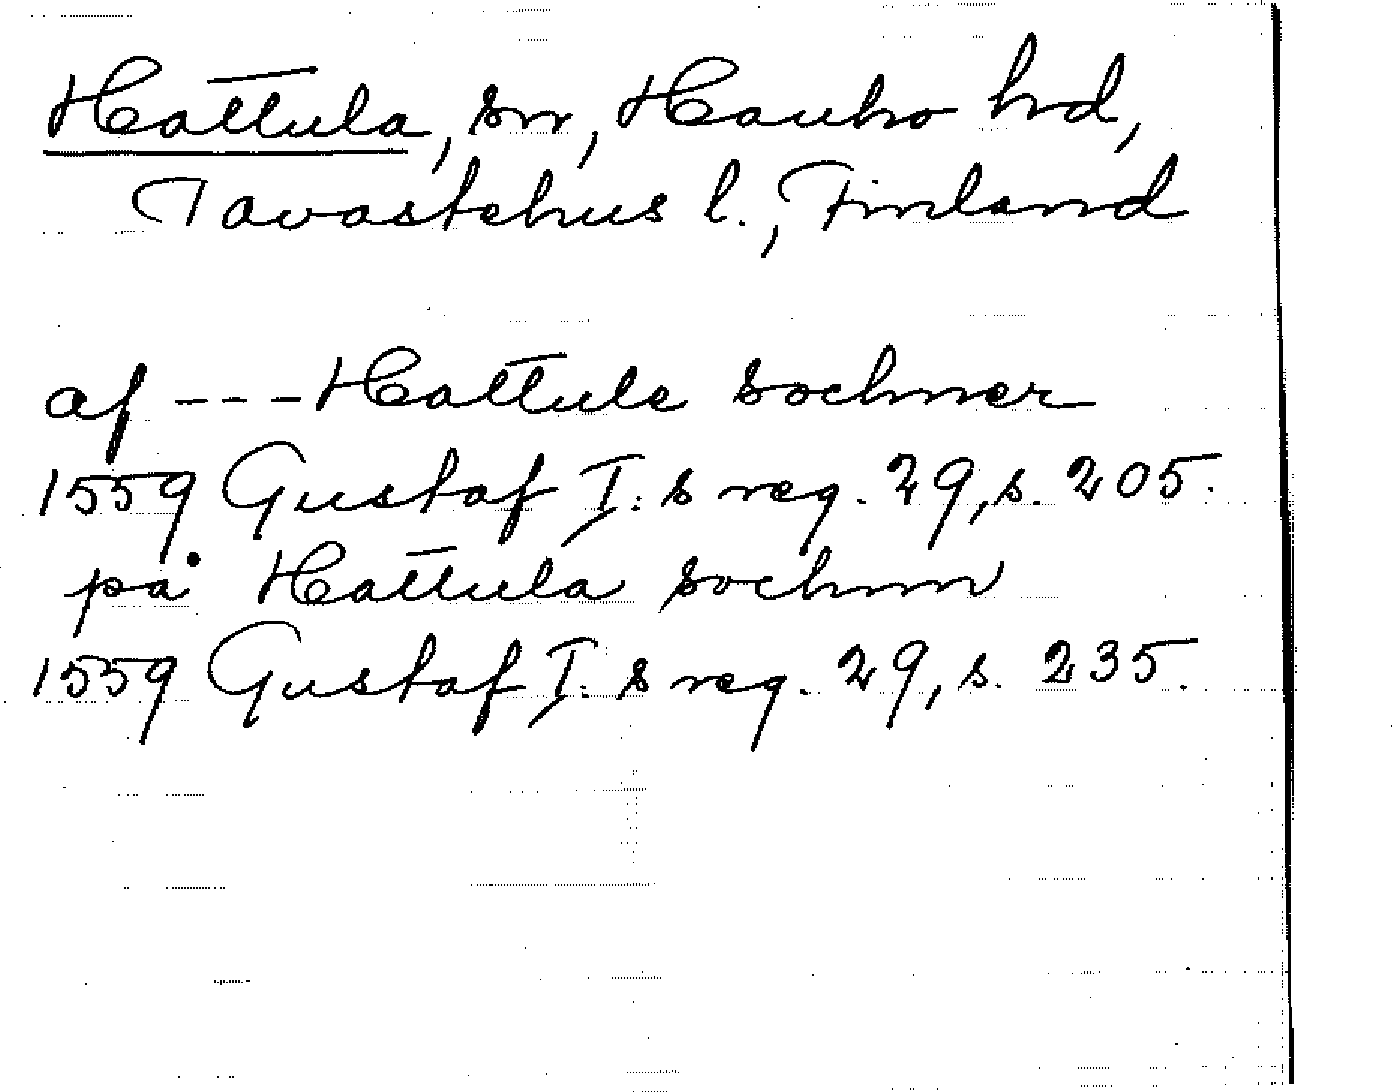 Hattula, sn, Hauho hrd,
Tavastehus l., Finland
af --- Hattule sochner
1559 Gustaf I:s reg. 29, s. 205.
på Hattula sochnn
1559 Gustaf I:s reg. 29, s. 235.